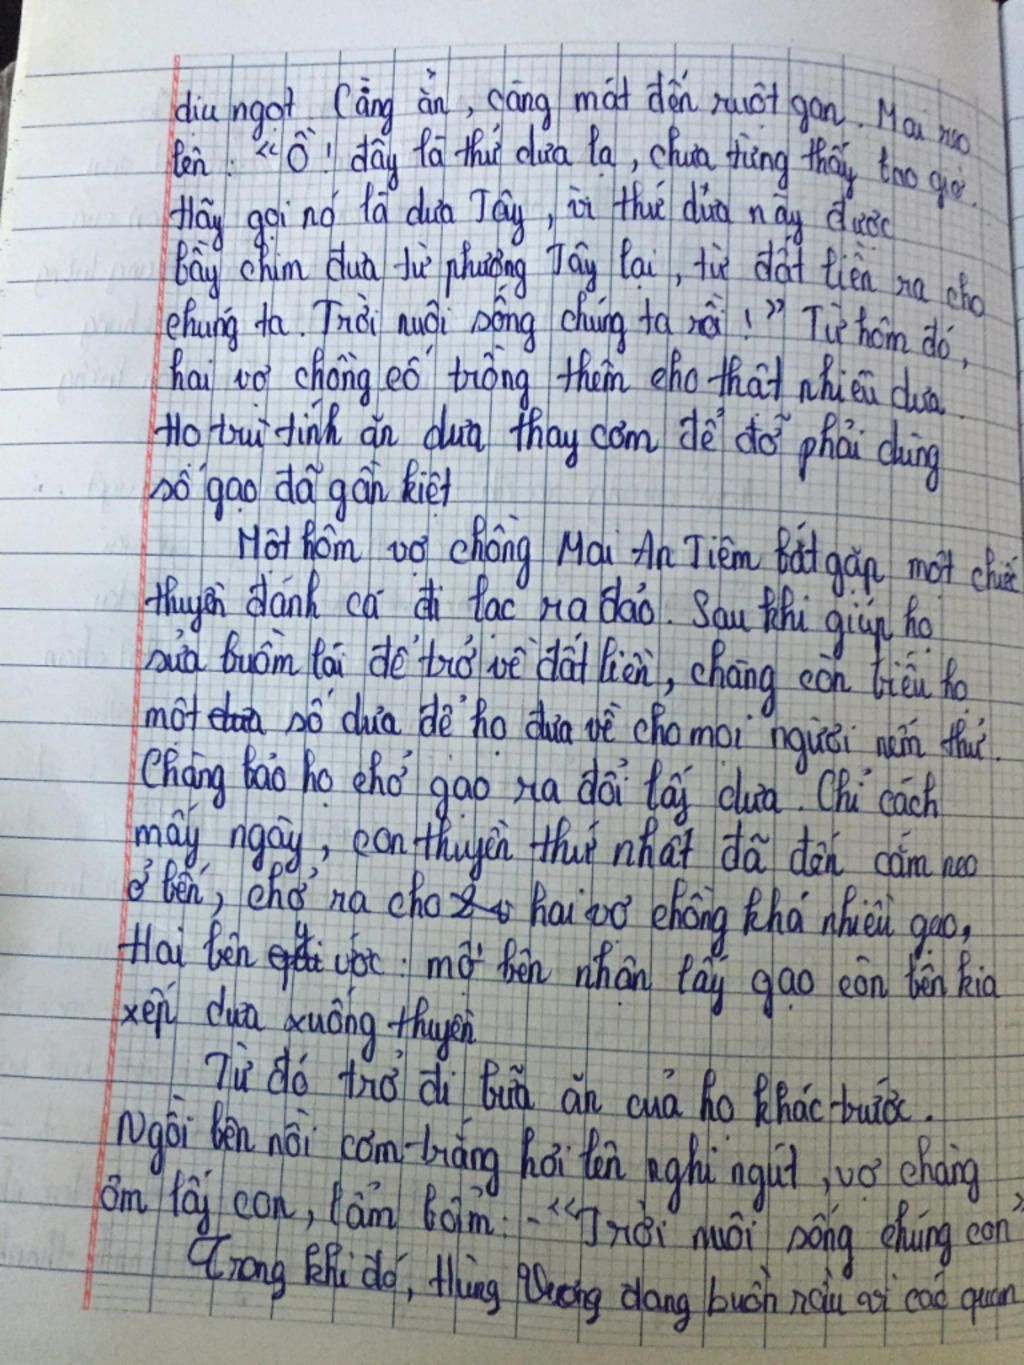 dịu ngọt. Càng ăn, càng mát đến ruột gan. Mai reo
lên: "Ồ! đây là thứ dưa lạ, chưa từng thấy bao giờ.
Hãy gọi nó là dưa Tây, vì thứ dưa này được
bầy chim đưa từ phương Tây lại, từ đất liền ra cho
chúng ta. Trời nuôi sống chúng ta rồi!" Từ hôm đó,
hai vợ chồng cố trồng thêm cho thật nhiều dưa.
Họ trù tính ăn dưa thay cơm để đỡ phải dùng
số gạo đã gần kiệt
Một hôm vợ chồng Mai An Tiêm bắt gặp một chiếc
thuyền đánh cá đi lạc ra đảo. Sau khi giúp họ
sửa buồm lái để trở về đất liền, chàng còn biếu họ
một số dưa để họ đưa về cho mọi người nếm thử.
Chàng bảo họ chở gạo ra đổi lấy dưa. Chỉ cách
mấy ngày, con thuyền thứ nhất đã đến cắm neo
ở bến, chở ra cho hai vợ chồng khá nhiều gạo,
Hai bên ước: mở bên nhận lấy gạo còn bên kia
xếp dưa xuống thuyền
Từ đó trở đi bữa ăn của họ khác trước.
Ngồi bên nồi cơm trắng hơi lên nghi ngút, vợ chàng
ôm lấy con, lẩm bẩm: - "Trời nuôi sống chúng con"
Trong khi đó, Hùng Vương đang buồn rầu vì các quan